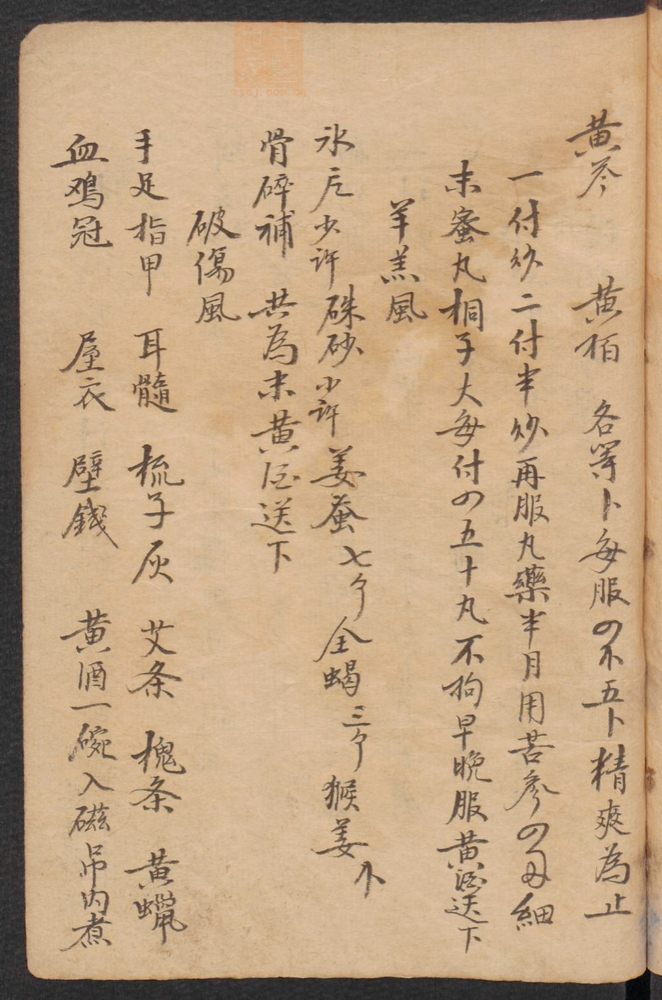 黄芩 黄栢 各等卜每服の不五卜精爽為止
一付炒二付半炒再服丸藥半月用苦参の両細
末蜜丸桐子大每付の五十丸不拘早晚服黄酒送下
羊羔風
氷片少許 硃砂少許 姜蚕七个 全蝎三个 猴姜
骨碎補 共為末黄酒送下
破傷風
手足指甲 耳髓 梳子灰 艾条 槐条 黄蠟
血鸡冠 屋衣 壁錢 黄酒一碗入磁吊内煮